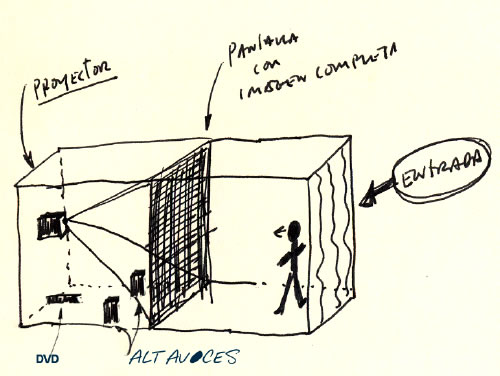 PROYECTOR
PANTALLA
CON
IMAGEN COMPLETA
ENTRADA
DVD
ALTAVOCES